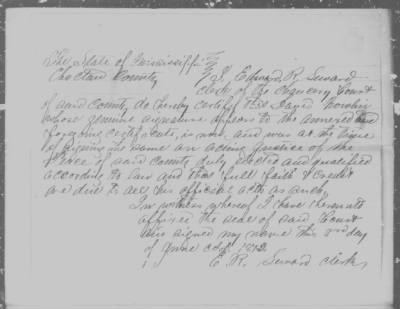 The State of Mississippi
Choctaw County I, Edward R. Seward
clerk of the Chancery Court
of said County do hereby certify that David
whose genuine signature appears to the annexed and
foregoing certificate, is now and was at the time
of signing the same an acting Justice of the
Peace of said County duly elected and qualified
according to law and that full faith & credit
are due to all his official acts as such.
In witness whereof I have hereunto
affixed the seal of said Court
and signed my name this day
of June
E. R. Seward Clerk